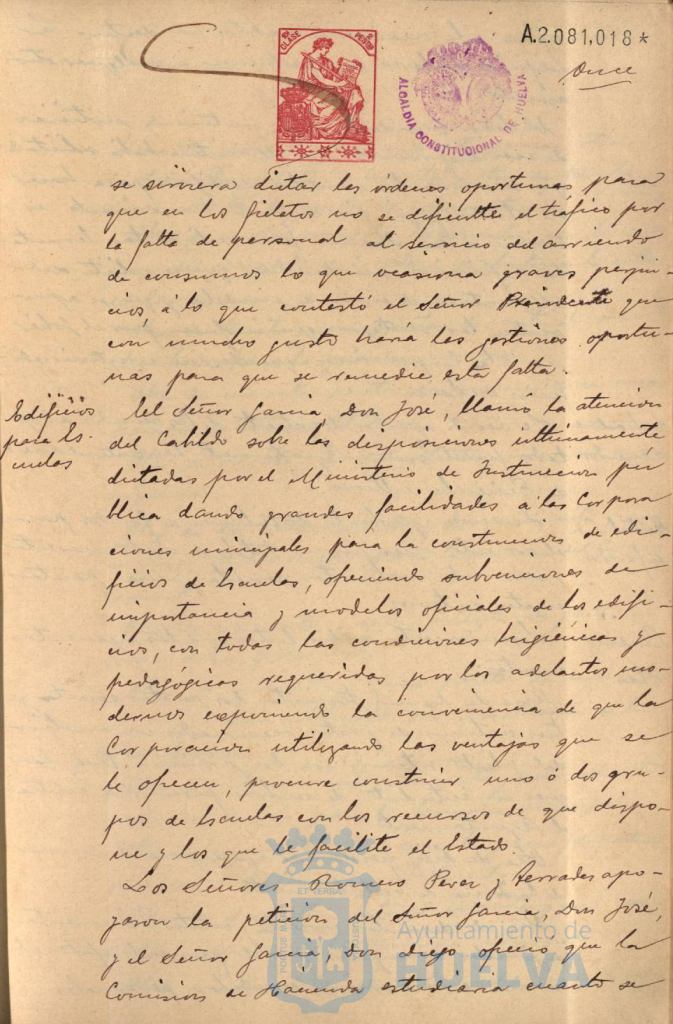 A.2.081,018*
Once
CLASE PESETA
ALCALDIA CONSTITUCIONAL DE HUELVA
se sirviera dictar las órdenes oportunas para
que en los fielatos no se dificulte el tráfico por
la falta de personal al servicio del arriendo
de consumos lo que ocasiona graves perjui-
cios, á lo que contestó el Señor Presidente que
con mucho gusto haría las gestiones oportu-
nas para que se remedie esta falta.
Edificios
para Es-
cuelas
El Señor Garcia, Don José, llamó la atencion
del Cabildo sobre las disposiciones ultimamente
dictadas por el Ministerio de Instruccion pú
blica dando grandes facilidades á las Corpora
ciones municipales para la construccion de edi-
ficios de Escuelas, ofreciendo subvenciones de
importancia y modelos oficiales de los edifi-
cios, con todas las condiciones higiénicas y
pedagógicas requeridas por los adelantos mo-
dernos exponiendo la conveniencia de que la
Corporacion utilizando las ventajas que se
le ofrecen, procure construir uno ó dos gru-
pos de Escuelas con los recursos de que dispo-
ne y los que le facilite el Estado.
Los Señores Romero Perez y Terrades apo-
yaron la peticion del Señor Garcia, Don José,
y el Señor Garcia, Don Diego ofreció que la
Comision de Hacienda estudiaria cuanto se
Ayuntamiento de
HUELVA